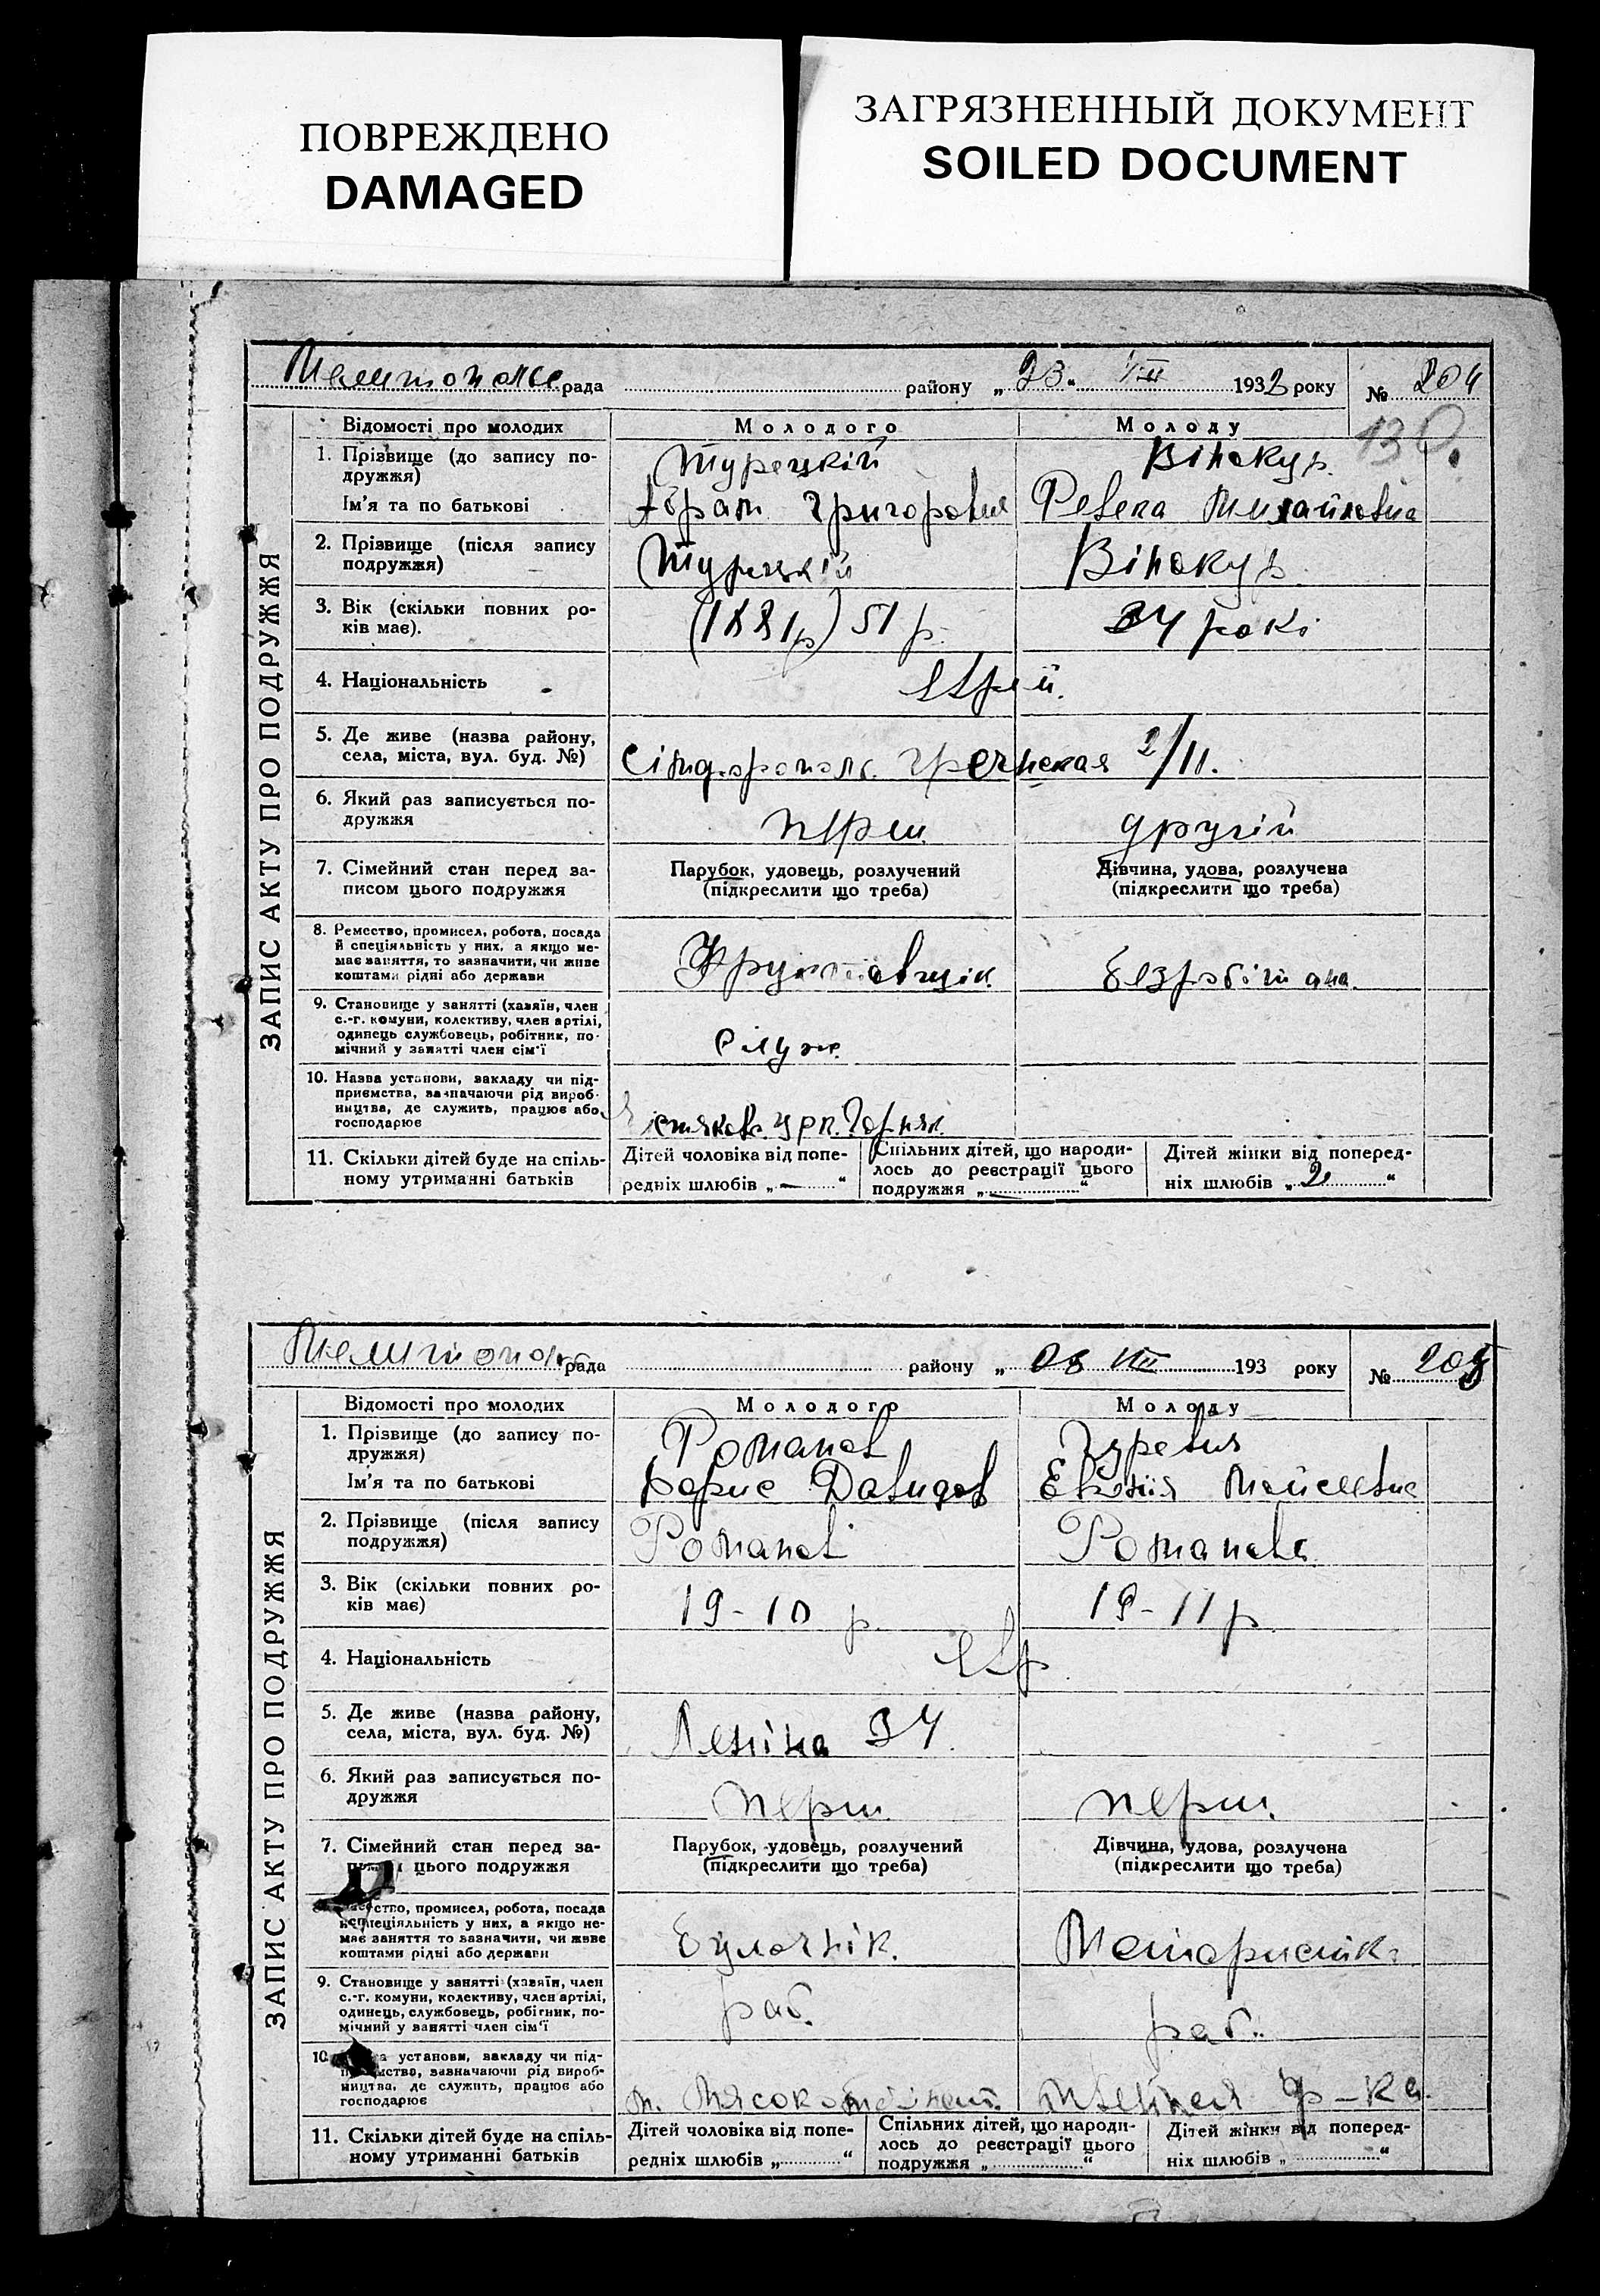 ПОВРЕЖДЕНО
DAMAGED
ЗАГРЯЗНЕННЫЙ ДОКУМЕНТ
SOILED DOCUMENT
рада району „23“ VIII 1932 року № 204
130.
ЗАПИС АКТУ ПРО ПОДРУЖЖЯ
Відомості про молодих Молодого Молоду
1. Прізвище (до запису по-
дружжя)
Турецкій Вінокур
Ім'я та по батькові Абрам Григоров Ревека
2. Прізвище (після запису
подружжя)
Турецкій Вінокур
3. Вік (скільки повних ро-
ків має).
(1881р) 51 р. 34 рокі
4. Національність Еврей.
5. Де живе (назва району,
села, міста, вул. буд. №)
Сімферополь. Греческая 2/11.
6. Який раз записується по-
дружжя
перш. другій
7. Сімейний стан перед за-
писом цього подружжя
Парубок, удовець, розлучений
(підкреслити що треба)
Дівчина, удова, розлучена
(підкреслити що треба)
8. Ремество, промисел, робота, посада
й спеціяльність у них, а якщо не-
має заняття, то зазначити, чи живе
коштами рідні або держави
безробітна
9. Становище у занятті (хазяїн, член
с.-г. комуни, колективу, член артілі,
одинець службовець, робітник, по-
мічний у занятті член сім'ї
служ.
10. Назва установи, закладу чи під-
приємства, зазначаючи рід вироб-
ництва, де служить, працює або
господарює
11. Скільки дітей буде на спіль-
ному утриманні батьків
Дітей чоловіка від попе-
редніх шлюбів „—“
Спільних дітей, що народи-
лось до реєстрації цього
подружжя „ “
Дітей жінки від поперед-
ніх шлюбів „2“
рада району „ 08 VIII 193 року № 205
ЗАПИС АКТУ ПРО ПОДРУЖЖЯ
Відомості про молодих Молодого Молоду
1. Прізвище (до запису по-
дружжя)
Романов Гуревич
Ім'я та по батькові Борис Давидов
2. Прізвище (після запису
подружжя)
Романов Романова
3. Вік (скільки повних ро-
ків має)
19-10 р. 19-11 р
4. Національність Евр
5. Де живе (назва району,
села, міста, вул. буд. №)
Леніна 34
6. Який раз записується по-
дружжя
перш. перш.
7. Сімейний стан перед за-
цього подружжя
Парубок, удовець, розлучений
(підкреслити що треба)
Дівчина, удова, розлучена
(підкреслити що треба)
промисел, робота, посада
спеціяльність у них, а якщо не-
має заняття то зазначити, чи живе
коштами рідні або держави
Булочнік.
9. Становище у занятті (хазяїн, член
с.-г. комуни, колективу, член артілі,
одинець, службовець, робітник, по-
мічний у занятті член сім'ї
раб. раб.
10. установи, закладу чи під-
зазначаючи рід вироб-
ництва, де служить, працює або
господарює
ф-ка
11. Скільки дітей буде на спіль-
ному утриманні батьків
Дітей чоловіка від попе-
редніх шлюбів „ “
Спільних дітей, що народи-
лось до реєстрації цього
подружжя „ “
Дітей жінки від поперед-
ніх шлюбів „ “